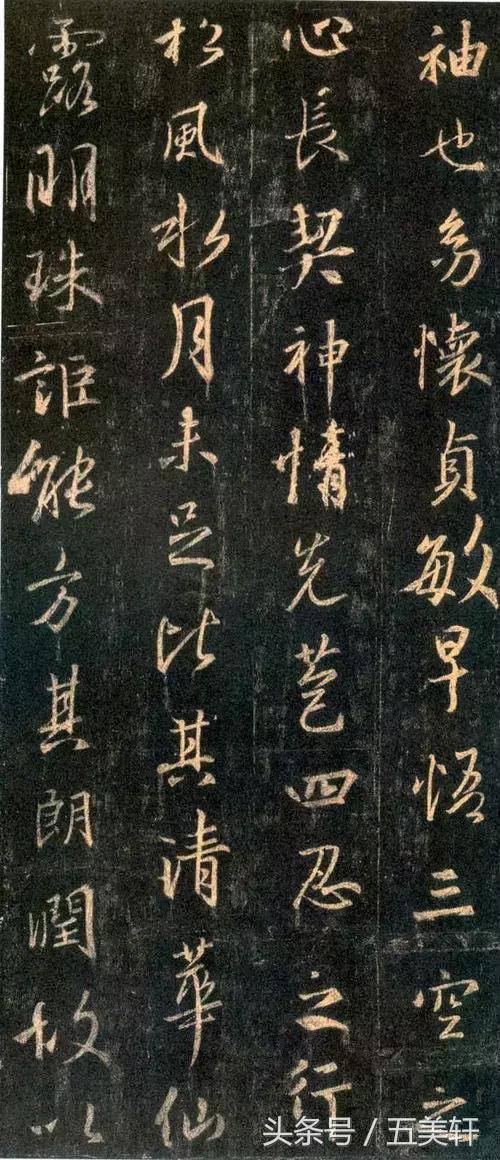 袖也幼懷貞敏早悟三空之
心長契神情先苞四忍之行
松風水月未足比其清華仙
露明珠詎能方其朗潤故以
头条号 / 五美轩